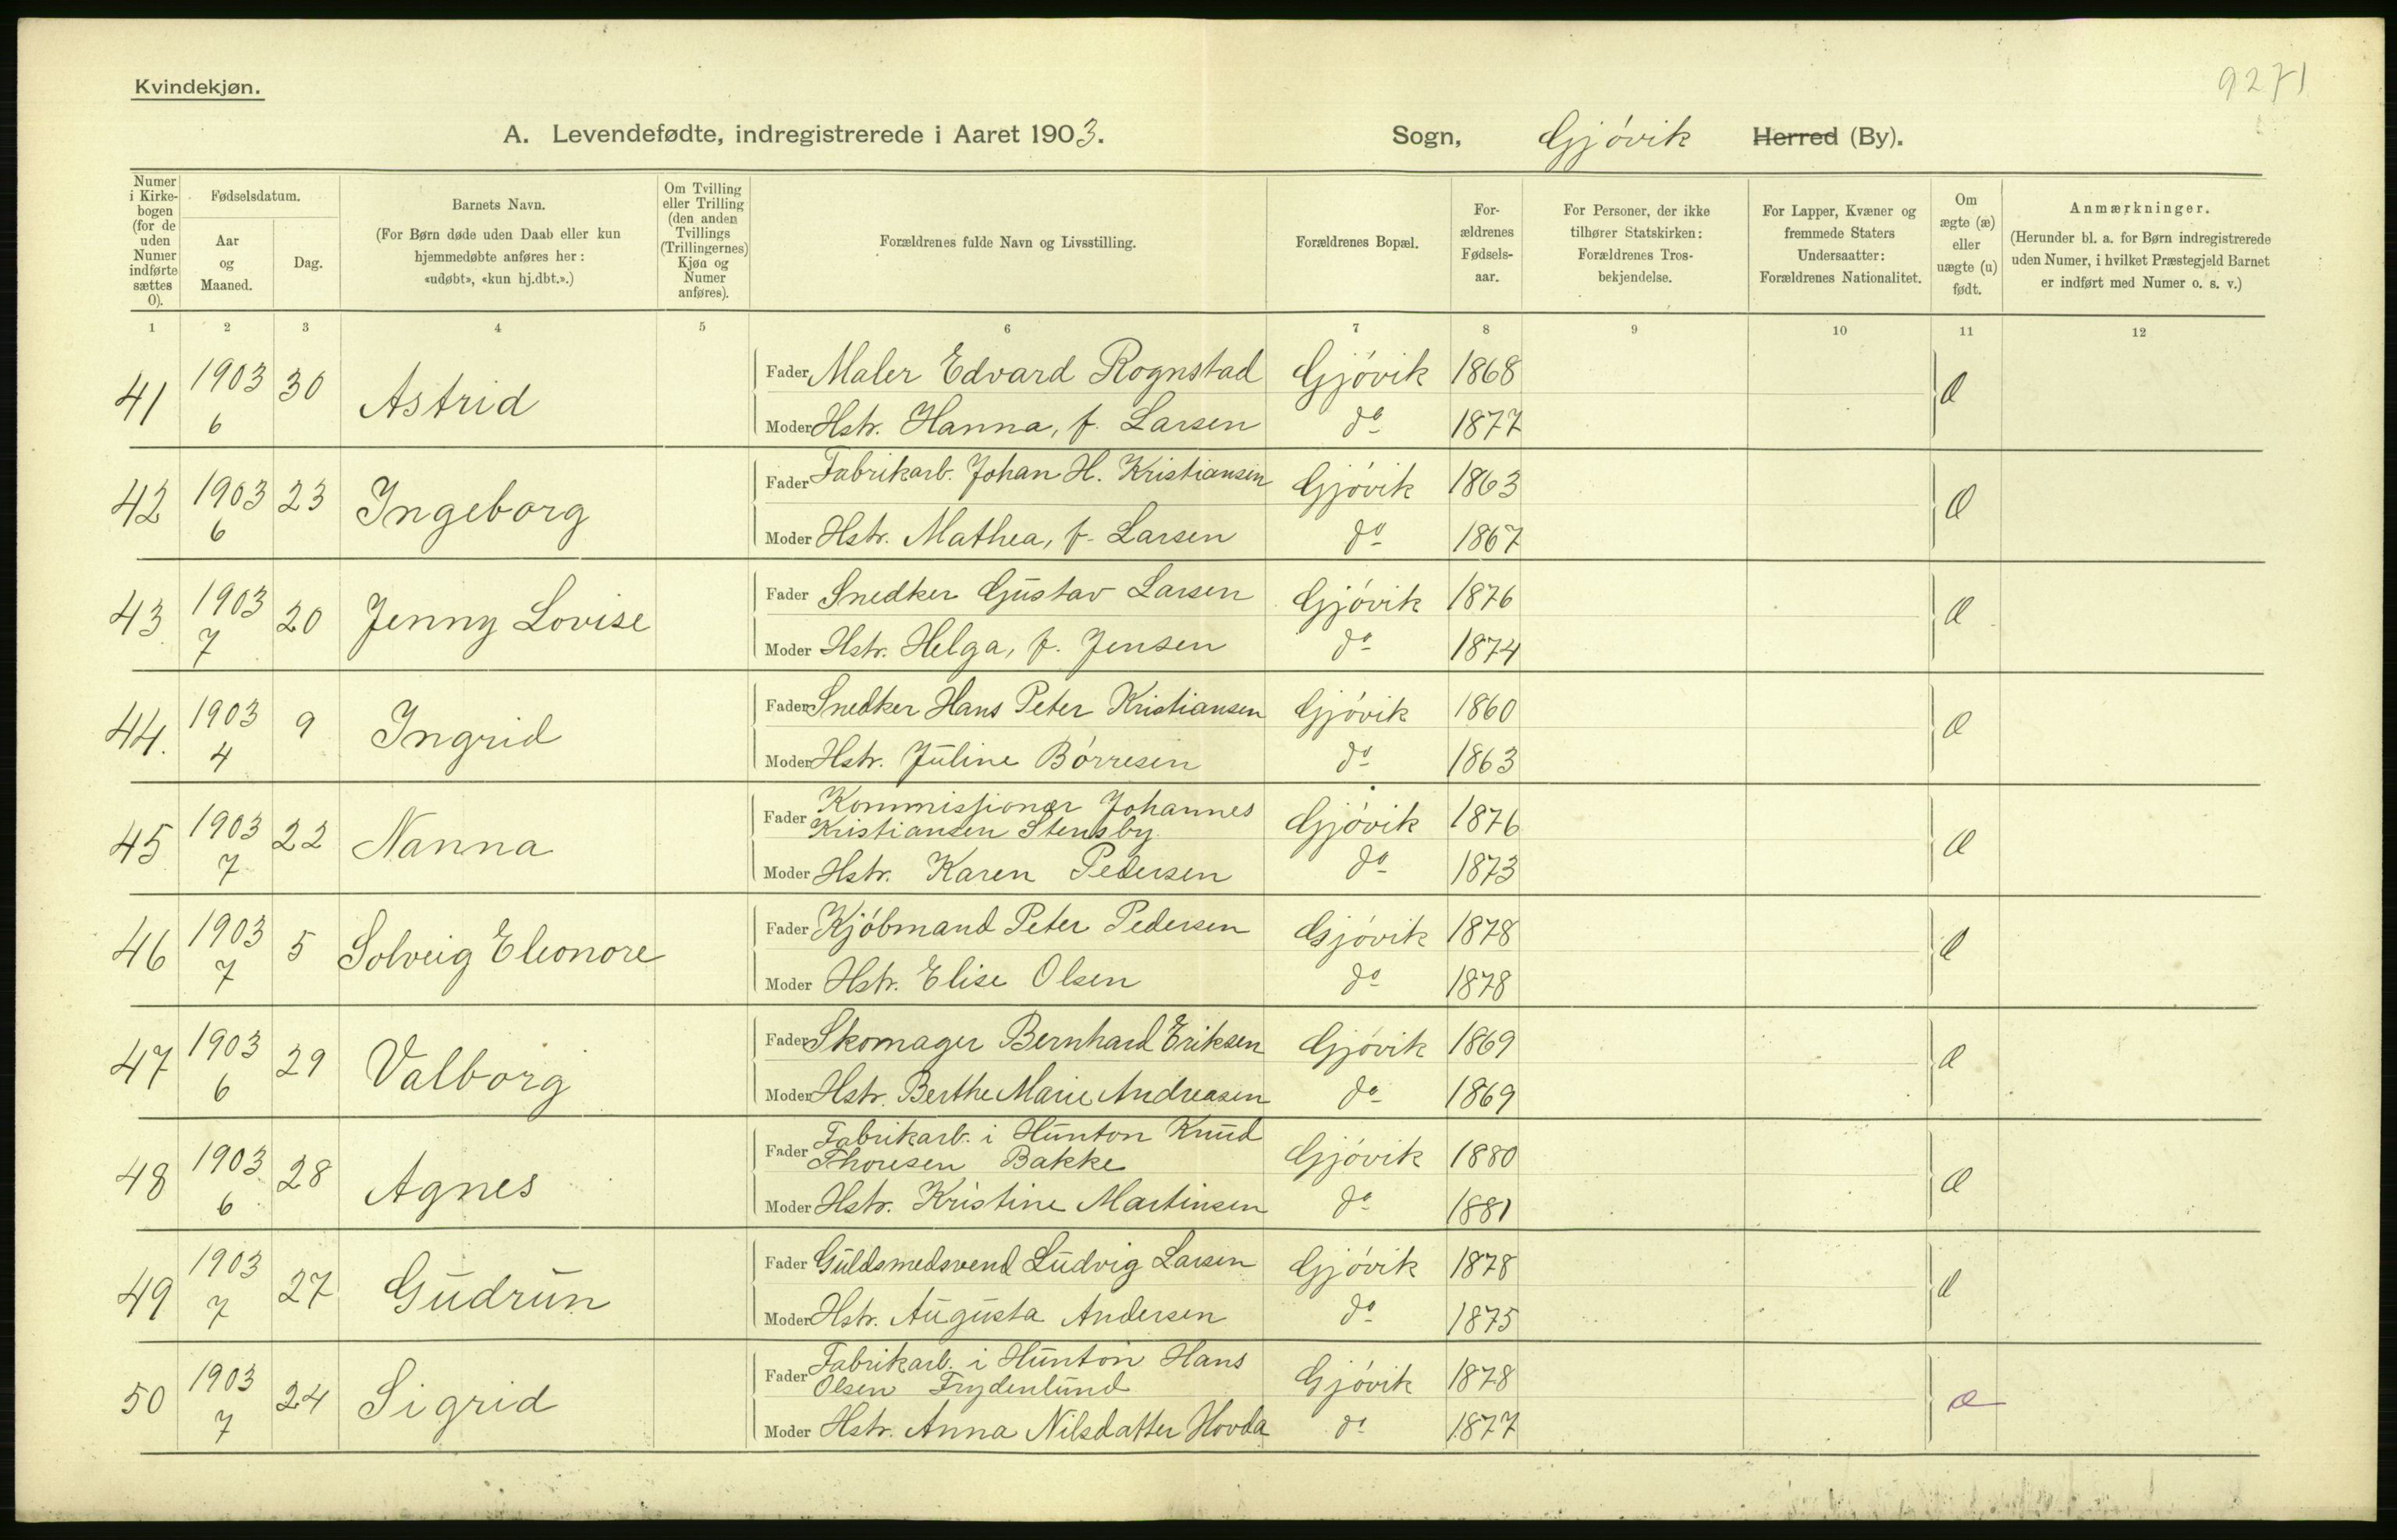 9271
Kvindekjøn.
A. Levendefødte, indregistrerede i Aaret 1903. Sogn, Gjövik Herred (By).
Numer i Kirkebogen (for de uden Numer indførte sættes 0).
Fødselsdatum.
Aar og Maaned.
Dag.
Barnets Navn.
(For Børn døde uden Daab eller kun hjemmedøbte anføres her: «udøbt», «kun hj.dbt.».)
Om Tvilling eller Trilling (den anden Tvillings (Trillingernes) Kjøn og Numer anføres).
Forældrenes fulde Navn og Livsstilling.
Forældrenes Bopæl.
For-ældrenes Fødsels-aar.
For Personer, der ikke tilhører Statskirken: Forældrenes Tros-bekjendelse.
For Lapper, Kvæner og fremmede Staters Undersaatter: Forældrenes Nationalitet.
Om ægte (æ) eller uægte (u) født.
Anmærkninger.
(Herunder bl. a. for Børn indregistrerede uden Numer, i hvilket Præstegjeld Barnet er indført med Numer o. s. v.)
1 2 3 4 5 6 7 8 9 10 11 12
41 1903 6 30 Astrid Fader Maler Edvard Rognstad Gjövik 1868 Æ
Moder Hstr. Hanna, f. Larsen do 1877
42 1903 6 23 Ingeborg Fader Fabrikarb. Johan H. Kristiansen Gjövik 1863 Æ
Moder Hstr. Mathea, f. Larsen do 1867
43 1903 7 20 Jenny Lovise Fader Snedker Gustav Larsen Gjövik 1876 Æ
Moder Hstr. Helga, f. Jensen do 1874
44. 1903 4 9 Ingrid Fader Snedker Hans Peter Kristiansen Gjövik 1860 Æ
Moder Hstr. Juline Börresen do 1863
45 1903 7 22 Nanna Fader Kommissionær Johannes
Kristiansen Stensby Gjövik 1876 Æ
Moder Hstr. Karen Pedersen do 1873
46 1903 7 5 Solveig Eleonore Fader Kjöbmand Peter Pedersen Gjövik 1878 Æ
Moder Hstr. Elise Olsen do 1878
47 1903 6 29 Valborg Fader Skomager Bernhard Eriksen Gjövik 1869 Æ
Moder Hstr. Berthe Marie Andreasen do 1869
48 1903 6 28 Agnes Fader Fabrikarb. i Hunton Knud
Thoresen Bakke Gjövik 1880 Æ
Moder Hstr. Kristine Martinsen do 1881
49 1903 7 27 Gudrun Fader Guldsmedsvend Ludvig Larsen Gjövik 1878 Æ
Moder Hstr. Augusta Andersen do 1875
50 1903 7 24 Sigrid Fader Fabrikarb. i Hunton Hans
Olsen Frydenlund Gjövik 1878 æ
Moder Hstr. Anna Nilsdatter Hovda do 1877